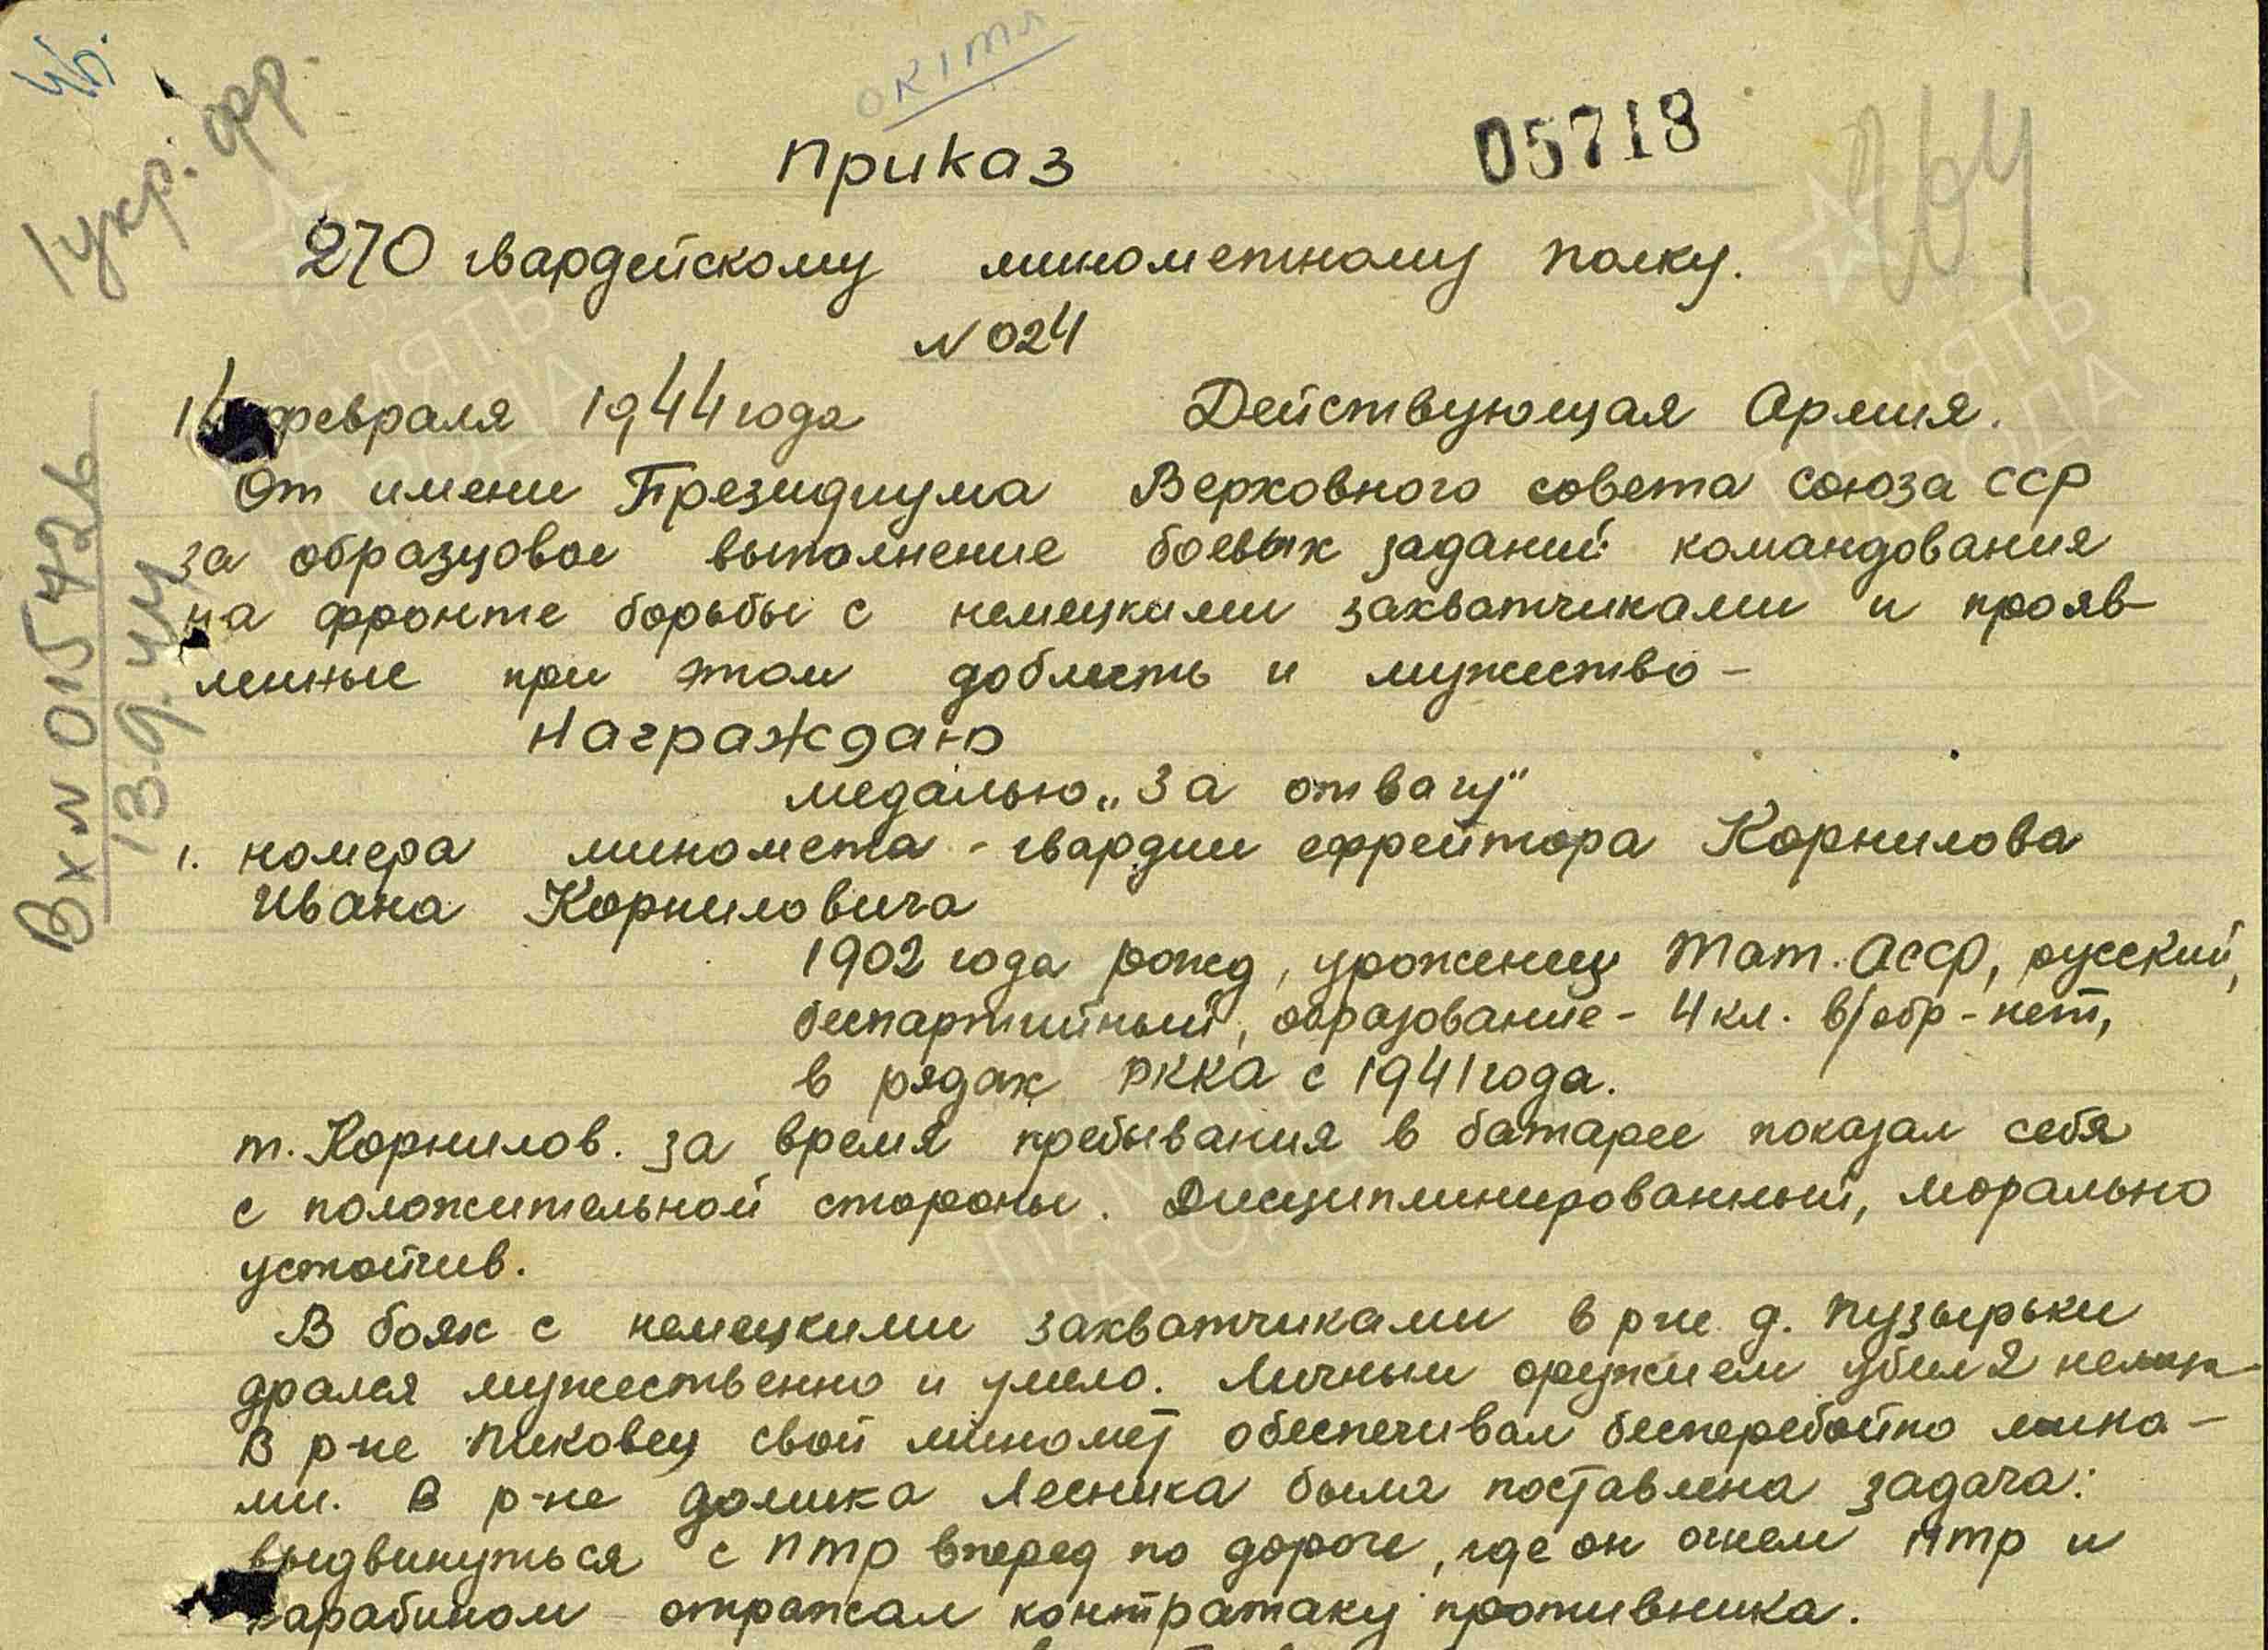 окітя
05718
1 укр. фр.
Приказ
270 гвардейскому минометному полку.
N 024
14 февраля 1944 года Действующая Армия.
От имени Президиума Верховного совета союза ССР
за образцовое выполнение боевых заданий командования
на фронте борьбы с немецкими захватчиками и прояв-
ленные при этом доблесть и мужество -
Награждаю
медалью „За отвагу"
1. номера миномета - гвардии ефрейтора Корнилова
Ивана Корниловича
1902 года рожд, уроженец Тат. АССР, русский,
беспартийный, образование - 4 кл. в/обр - нет,
в рядах РККА с 1941 года.
т. Корнилов. за время пребывания в батарее показал себя
с положительной стороны. Дисциплинированный, морально
устойчив.
В боях с немецкими захватчиками в р-не д. Пузырьки
дрался мужественно и умело. Личным оружием убил 2 немцев
В р-не Пиковец свой миномет обеспечивал бесперебойно мина-
ми. В р-не домика Лесника была поставлена задача:
выдвинуться с ПТР вперед по дороге, где он огнем ПТР и
карабином отражал контратаку противника.
Вх N 015426
13.9.44
ПАМЯТЬ
НАРОДА
ПАМЯТЬ
НАРОДА
ПАМЯТЬ
НАРОДА